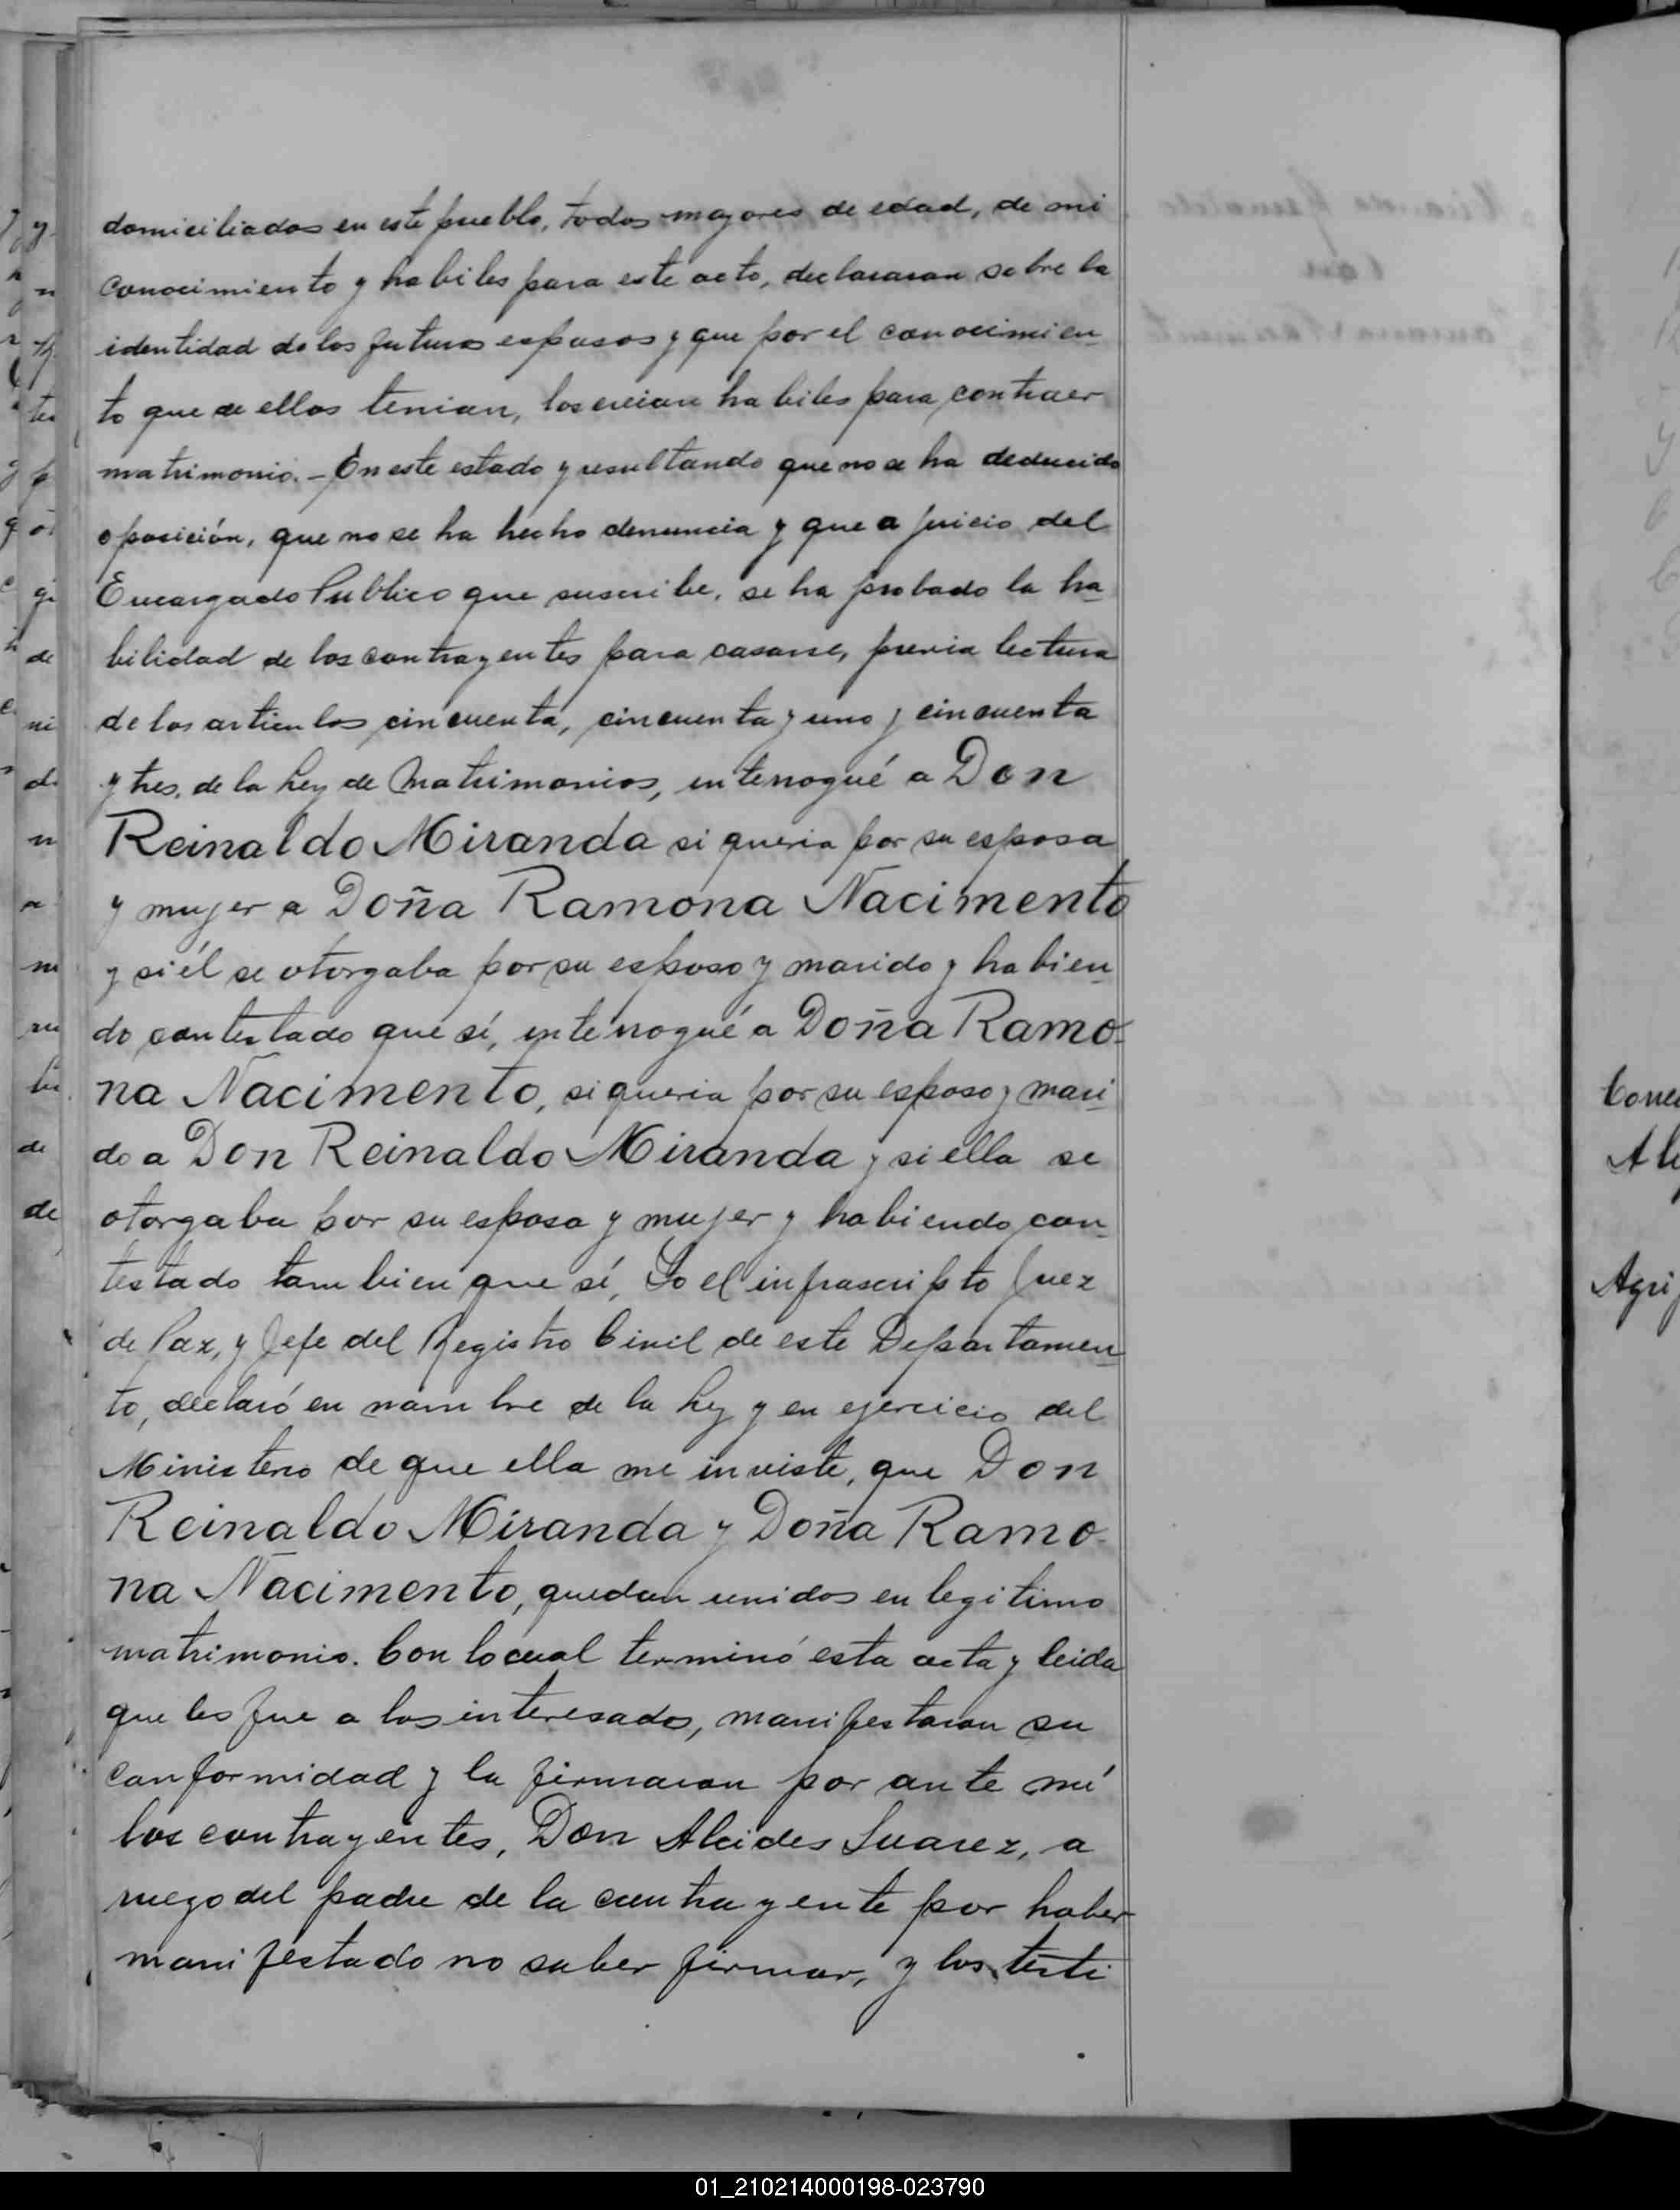 domiciliados en este pueblo, todos mayores de edad, de mi
conocimiento y habiles para este acto, declararan sobre la
identidad de los futuros esposos y que por el conocimien
to que de ellos tenian, los creian habiles para contraer
matrimonio. - En este estado y resultando que no se ha deducido
oposición, que no se ha hecho denuncia y que a juicio del
Encargado Publico que suscribe, se ha probado la ha
bilidad de los contrayentes para casarse, previa lectura
de los articulos cincuenta, cincuenta y uno y cincuenta
y tres, de la Ley de Matrimonios, interrogué a Don
Reinaldo Miranda si queria por su esposa
y mujer a Doña Ramona Nacimento
y si él se otorgaba por su esposo y marido y habien
do contestado que sí, interrogué a Doña Ramo-
na Nacimento, si queria por su esposo y mari
do a Don Reinaldo Miranda y si ella se
otorgaba por su esposa y mujer y habiendo con
testado tambien que sí, Yo el infrascripto Juez
de Paz, y Jefe del Registro Civil de este Departamen
to, declaró en nombre de la Ley y en ejercicio del
Ministerio de que ella me inviste, que Don
Reinaldo Miranda y Doña Ramo-
na Nacimento, quedan unidos en legitimo
matrimonio. Con lo cual terminó esta acta y leida
que les fue a los interesados, manifestaron su
conformidad y la firmaron por ante mí
los contrayentes, Don Alcides Suarez, a
ruego del padre de la contrayente por haber
manifestado no saber firmar, y los testi
01_210214000198-023790